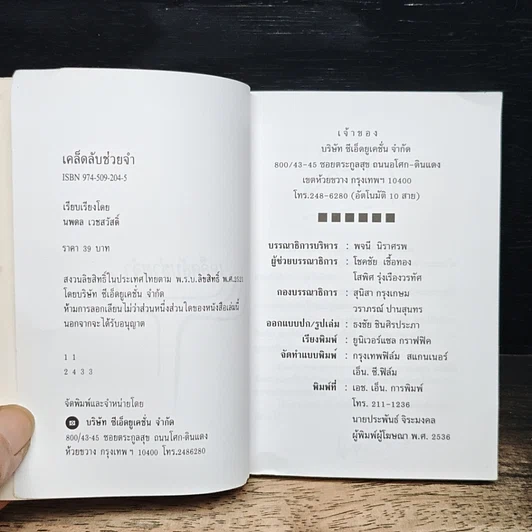 เคล็ดลับช่วยจำ
ISBN 974-509-204-5
เรียบเรียงโดย
นพดล เวชสวัสดิ์
ราคา 39 บาท
สงวนลิขสิทธิ์ในประเทศไทยตาม พ.ร.บ.ลิขสิทธิ์ พ.ศ.2521
โดยบริษัท ซีเอ็ดยูเคชั่น จำกัด
ห้ามการลอกเลียนไม่ว่าส่วนหนึ่งส่วนใดของหนังสือเล่มนี้
นอกจากจะได้รับอนุญาต
1 1
2 4 3 3
จัดพิมพ์และจำหน่ายโดย
บริษัท ซีเอ็ดยูเคชั่น จำกัด
800/43-45 ซอยตระกูลสุข ถนนอโศก-ดินแดง
ห้วยขวาง กรุงเทพฯ 10400 โทร.2486280
เจ้าของ
บริษัท ซีเอ็ดยูเคชั่น จำกัด
800/43-45 ซอยตระกูลสุข ถนนอโศก-ดินแดง
เขตห้วยขวาง กรุงเทพฯ 10400
โทร.248-6280 (อัตโนมัติ 10 สาย)
บรรณาธิการบริหาร : พจนี นิราศรพ
ผู้ช่วยบรรณาธิการ : โชคชัย เชื้อทอง
โสพิศ รุ่งเรืองวรทัศ
กองบรรณาธิการ : สุนิสา กรุงเกษม
วราภรณ์ ปานสุนทร
ออกแบบปก/รูปเล่ม : ธงชัย ชินศิรประภา
เรียงพิมพ์ : ยูนิเวอร์แซล กราฟฟิค
จัดทำแบบพิมพ์ : กรุงเทพฟิล์ม สแกนเนอร์
เอ็น.ซี.ฟิล์ม
พิมพ์ที่ : เอช.เอ็น.การพิมพ์
โทร. 211-1236
นายประพันธ์ จิระมงคล
ผู้พิมพ์ผู้โฆษณา พ.ศ. 2536